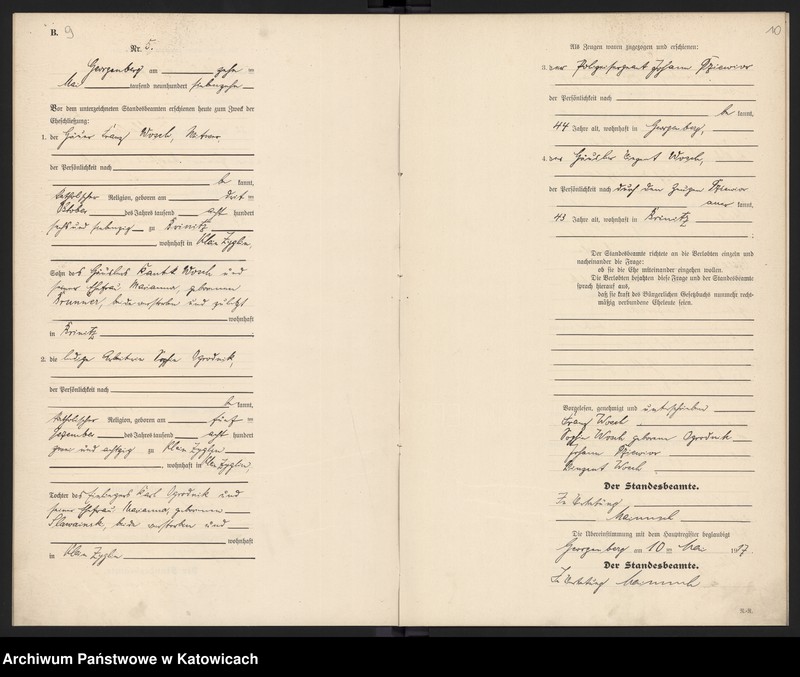 B. 9
Nr. 5.
Georgenberg am zehn =
Mai tausend neunhundert siebenzehn
Vor dem unterzeichneten Standesbeamten erschienen heute zum Zweck der
Eheschließung:
1. der Häuer Franz Wosch, Witwer,
der Persönlichkeit nach
be kannt,
katholischer Religion, geboren am drit =
Oktober des Jahres tausend acht hundert
sechs und siebenzig zu Brinitz
, wohnhaft in Klein Zyglin,
Sohn des Häuslers Wosch und
seiner Ehefrau Marianna, geborenen
beide verstorben und zuletzt
wohnhaft
in Brinitz
2. die ledige Arbeiterin Sophie Ogrodnik,
der Persönlichkeit nach
be kannt,
katholischer Religion, geboren am fünf =
Dezember des Jahres tausend acht hundert
und achtzig zu Klein Zyglin
, wohnhaft in Klein Zyglin,
Tochter des Karl Ogrodnik und
seiner Ehefrau Marianna, geborenen
beide verstorben und
wohnhaft
in Klein Zyglin
10
Als Zeugen waren zugezogen und erschienen:
3. der Polizeisergeant Johann
der Persönlichkeit nach
be kannt,
44 Jahre alt, wohnhaft in Georgenberg,
4. der Häusler Vinzent Wosch,
der Persönlichkeit nach durch den Zeugen
aner kannt,
43 Jahre alt, wohnhaft in Brinitz
Der Standesbeamte richtete an die Verlobten einzeln und
nacheinander die Frage:
ob sie die Ehe miteinander eingehen wollen.
Die Verlobten bejahten diese Frage und der Standesbeamte
sprach hierauf aus,
daß sie kraft des Bürgerlichen Gesetzbuchs nunmehr recht-
mäßig verbundene Eheleute seien.
Vorgelesen, genehmigt und unterschrieben
Franz Wosch
Sophie Wosch geborene Ogrodnik
Johann
Vinzent Wosch
Der Standesbeamte.
In Vertretung
Die Übereinstimmung mit dem Hauptregister beglaubigt
Georgenberg am 10 ten Mai 1917
Der Standesbeamte.
In Vertretung
Archiwum Państwowe w Katowicach